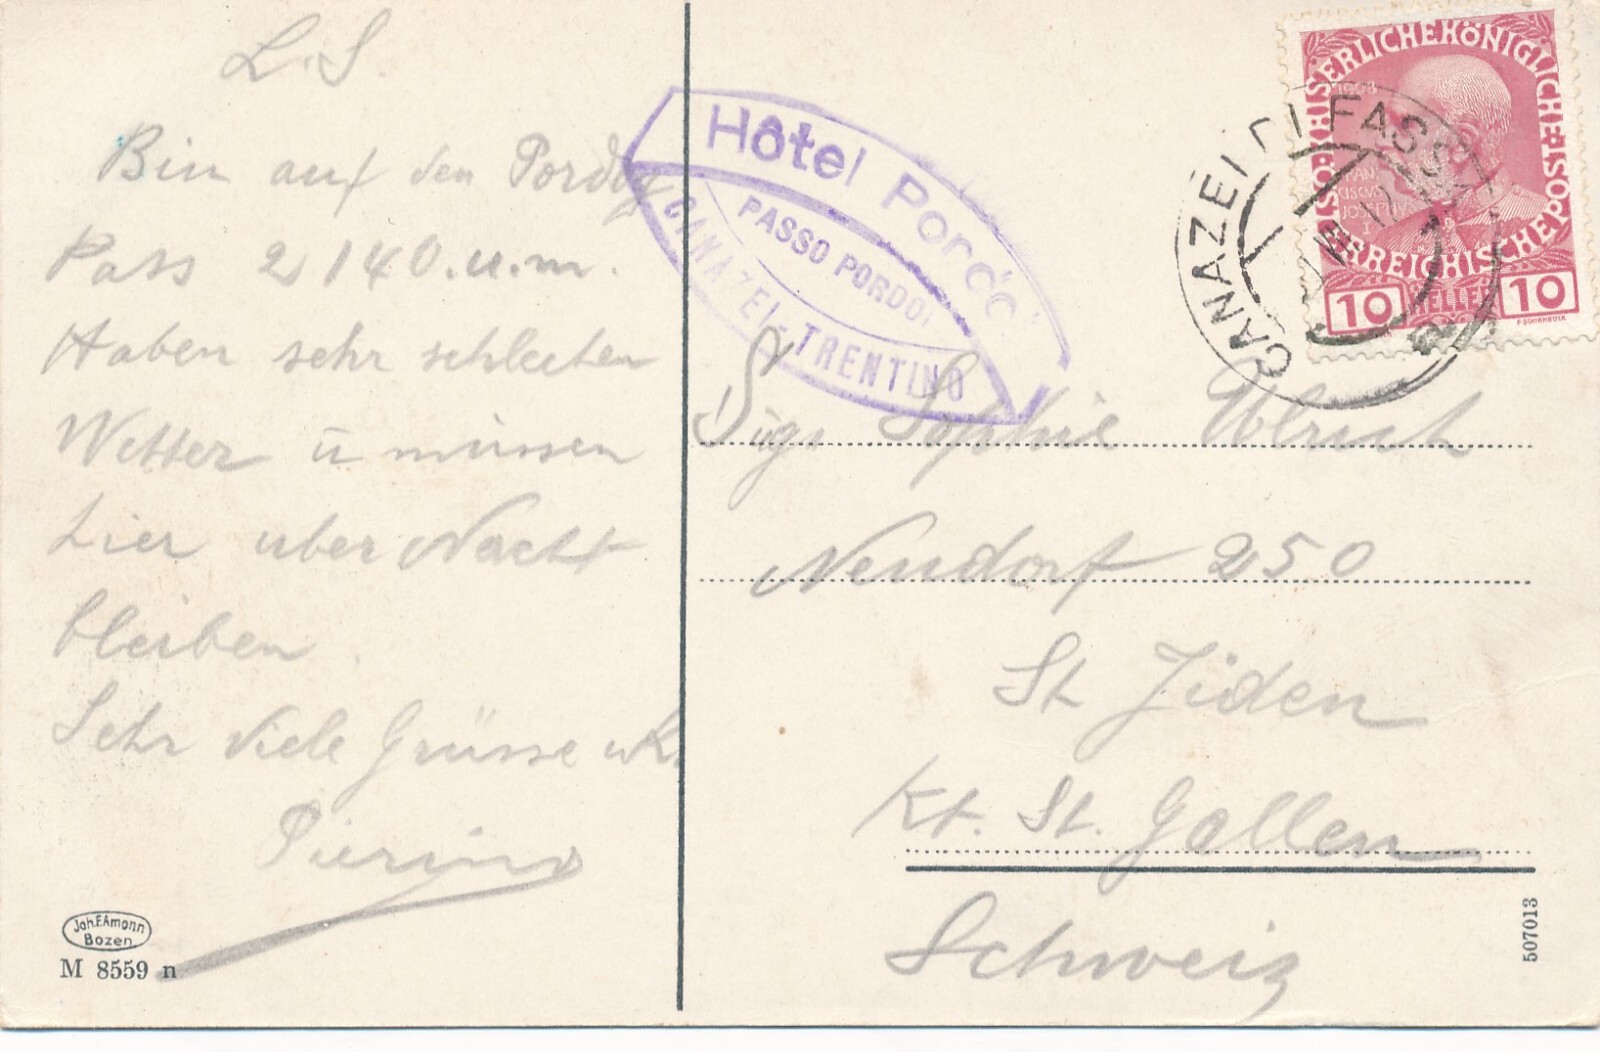 L. S.
Bin auf den Pordoy
Pass 2140.ü.m.
Haben sehr schlechten
Wetter ü müssen
hier über Nacht
bleiben.
Sehr viele Grüsse u K.
Pierino
Joh. F. Amonn
Bozen
M 8559 n
Hôtel Pordoi
PASSO PORDOI
CANAZEI - TRENTINO
KAISERLICHE KÖNIGLICHE ÖSTERREICHISCHE POST
1908
FRAN
CISCVS
JOSEPHVS
I
10 HELLER 10
CANAZEI DI FASSA
Sig. Sophie Ulrich
Neudorf 250
St Fiden
Kt. St. Gallen
Schweiz
507013